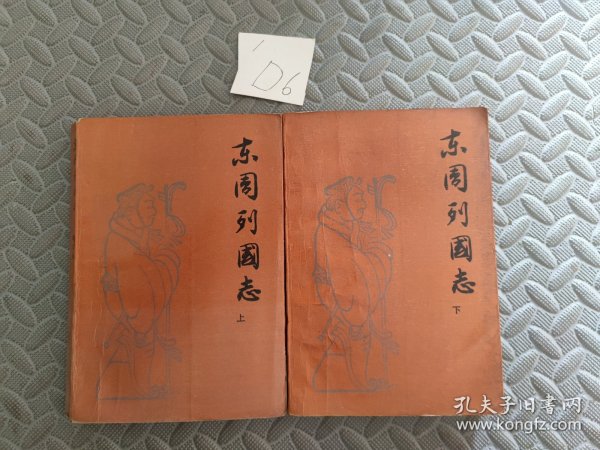 D6
东周列國志
上
东周列國志
下
孔夫子旧书网
www.kongfz.com